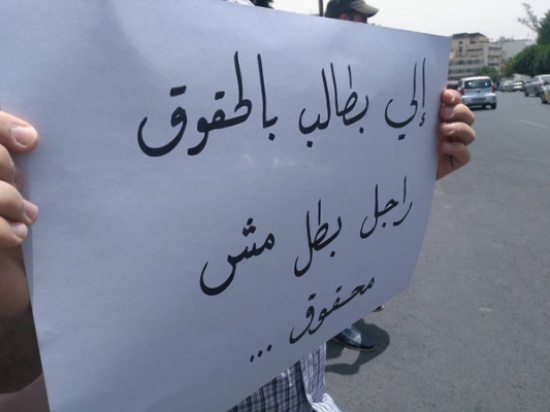 إلي بطالب بالحقوق
راجل بطل مش
محقوق ...